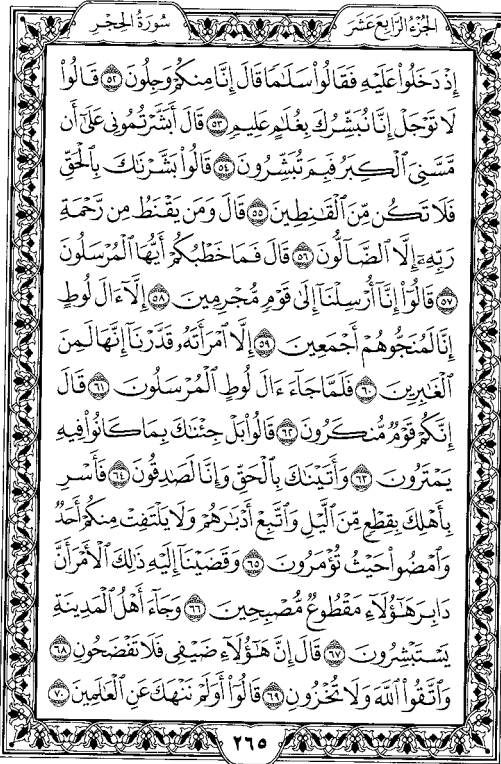 سُورَةُ الحِجْرِ
الجُزْءُ الرَّابِعُ عَشَرَ
إِذْ دَخَلُوا۟ عَلَيْهِ فَقَالُوا۟ سَلَـٰمًا قَالَ إِنَّا مِنكُمْ وَجِلُونَ ٥٢ قَالُوا۟
لَا تَوْجَلْ إِنَّا نُبَشِّرُكَ بِغُلَـٰمٍ عَلِيمٍ ٥٣ قَالَ أَبَشَّرْتُمُونِى عَلَىٰٓ أَن
مَّسَّنِىَ ٱلْكِبَرُ فَبِمَ تُبَشِّرُونَ ٥٤ قَالُوا۟ بَشَّرْنَـٰكَ بِٱلْحَقِّ
فَلَا تَكُن مِّنَ ٱلْقَـٰنِطِينَ ٥٥ قَالَ وَمَن يَقْنَطُ مِن رَّحْمَةِ
رَبِّهِۦٓ إِلَّا ٱلضَّآلُّونَ ٥٦ قَالَ فَمَا خَطْبُكُمْ أَيُّهَا ٱلْمُرْسَلُونَ
٥٧ قَالُوٓا۟ إِنَّآ أُرْسِلْنَآ إِلَىٰ قَوْمٍ مُّجْرِمِينَ ٥٨ إِلَّآ ءَالَ لُوطٍ
إِنَّا لَمُنَجُّوهُمْ أَجْمَعِينَ ٥٩ إِلَّا ٱمْرَأَتَهُۥ قَدَّرْنَآ إِنَّهَا لَمِنَ
ٱلْغَـٰبِرِينَ ٦٠ فَلَمَّا جَآءَ ءَالَ لُوطٍ ٱلْمُرْسَلُونَ ٦١ قَالَ
إِنَّكُمْ قَوْمٌ مُّنكَرُونَ ٦٢ قَالُوا۟ بَلْ جِئْنَـٰكَ بِمَا كَانُوا۟ فِيهِ
يَمْتَرُونَ ٦٣ وَأَتَيْنَـٰكَ بِٱلْحَقِّ وَإِنَّا لَصَـٰدِقُونَ ٦٤ فَأَسْرِ
بِأَهْلِكَ بِقِطْعٍ مِّنَ ٱلَّيْلِ وَٱتَّبِعْ أَدْبَـٰرَهُمْ وَلَا يَلْتَفِتْ مِنكُمْ أَحَدٌ
وَٱمْضُوا۟ حَيْثُ تُؤْمَرُونَ ٦٥ وَقَضَيْنَآ إِلَيْهِ ذَٰلِكَ ٱلْأَمْرَ أَنَّ
دَابِرَ هَـٰٓؤُلَآءِ مَقْطُوعٌ مُّصْبِحِينَ ٦٦ وَجَآءَ أَهْلُ ٱلْمَدِينَةِ
يَسْتَبْشِرُونَ ٦٧ قَالَ إِنَّ هَـٰٓؤُلَآءِ ضَيْفِى فَلَا تَفْضَحُونِ ٦٨
وَٱتَّقُوا۟ ٱللَّهَ وَلَا تُخْزُونِ ٦٩ قَالُوٓا۟ أَوَلَمْ نَنْهَكَ عَنِ ٱلْعَـٰلَمِينَ ٧٠
٢٦٥